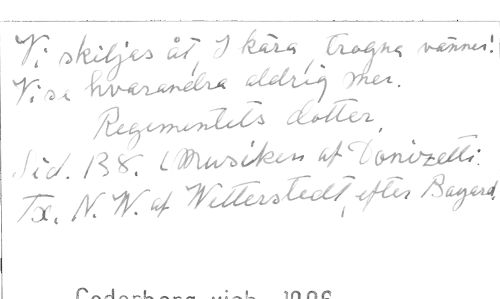 Vi skiljas åt, I kära, trogna vänner!
Vi se hvarandra aldrig mer.
Regementets dotter,
Sid. 138. (Musiken af Donizetti.
Tx. N. W. af Wetterstedt, efter Bayard.